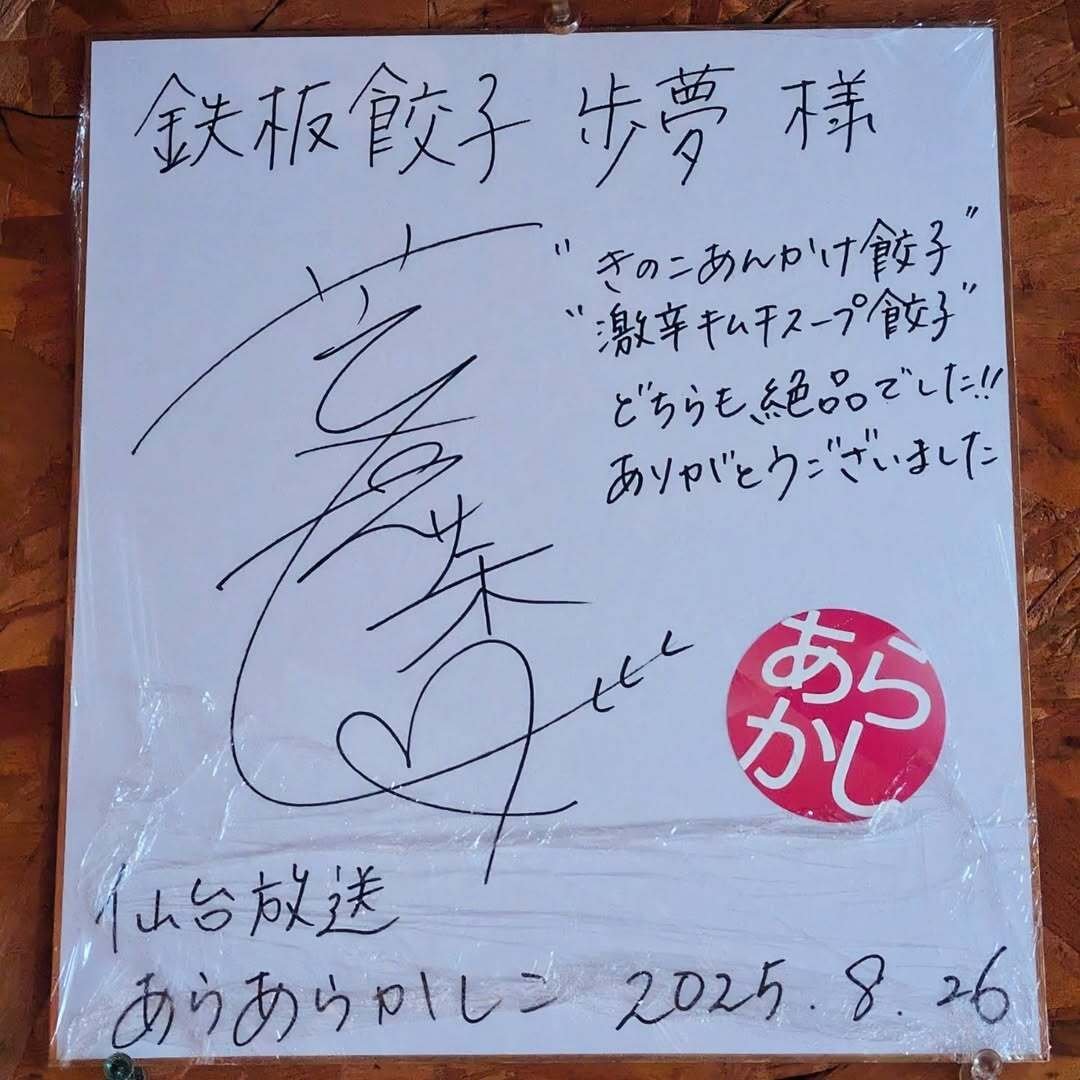 鉄板餃子 歩夢 様
"きのこあんかけ餃子"
"激辛キムチスープ餃子"
どちらも絶品でした!!
ありがとうございました
あら
かし
仙台放送
あらあらかしこ 2025.8.26